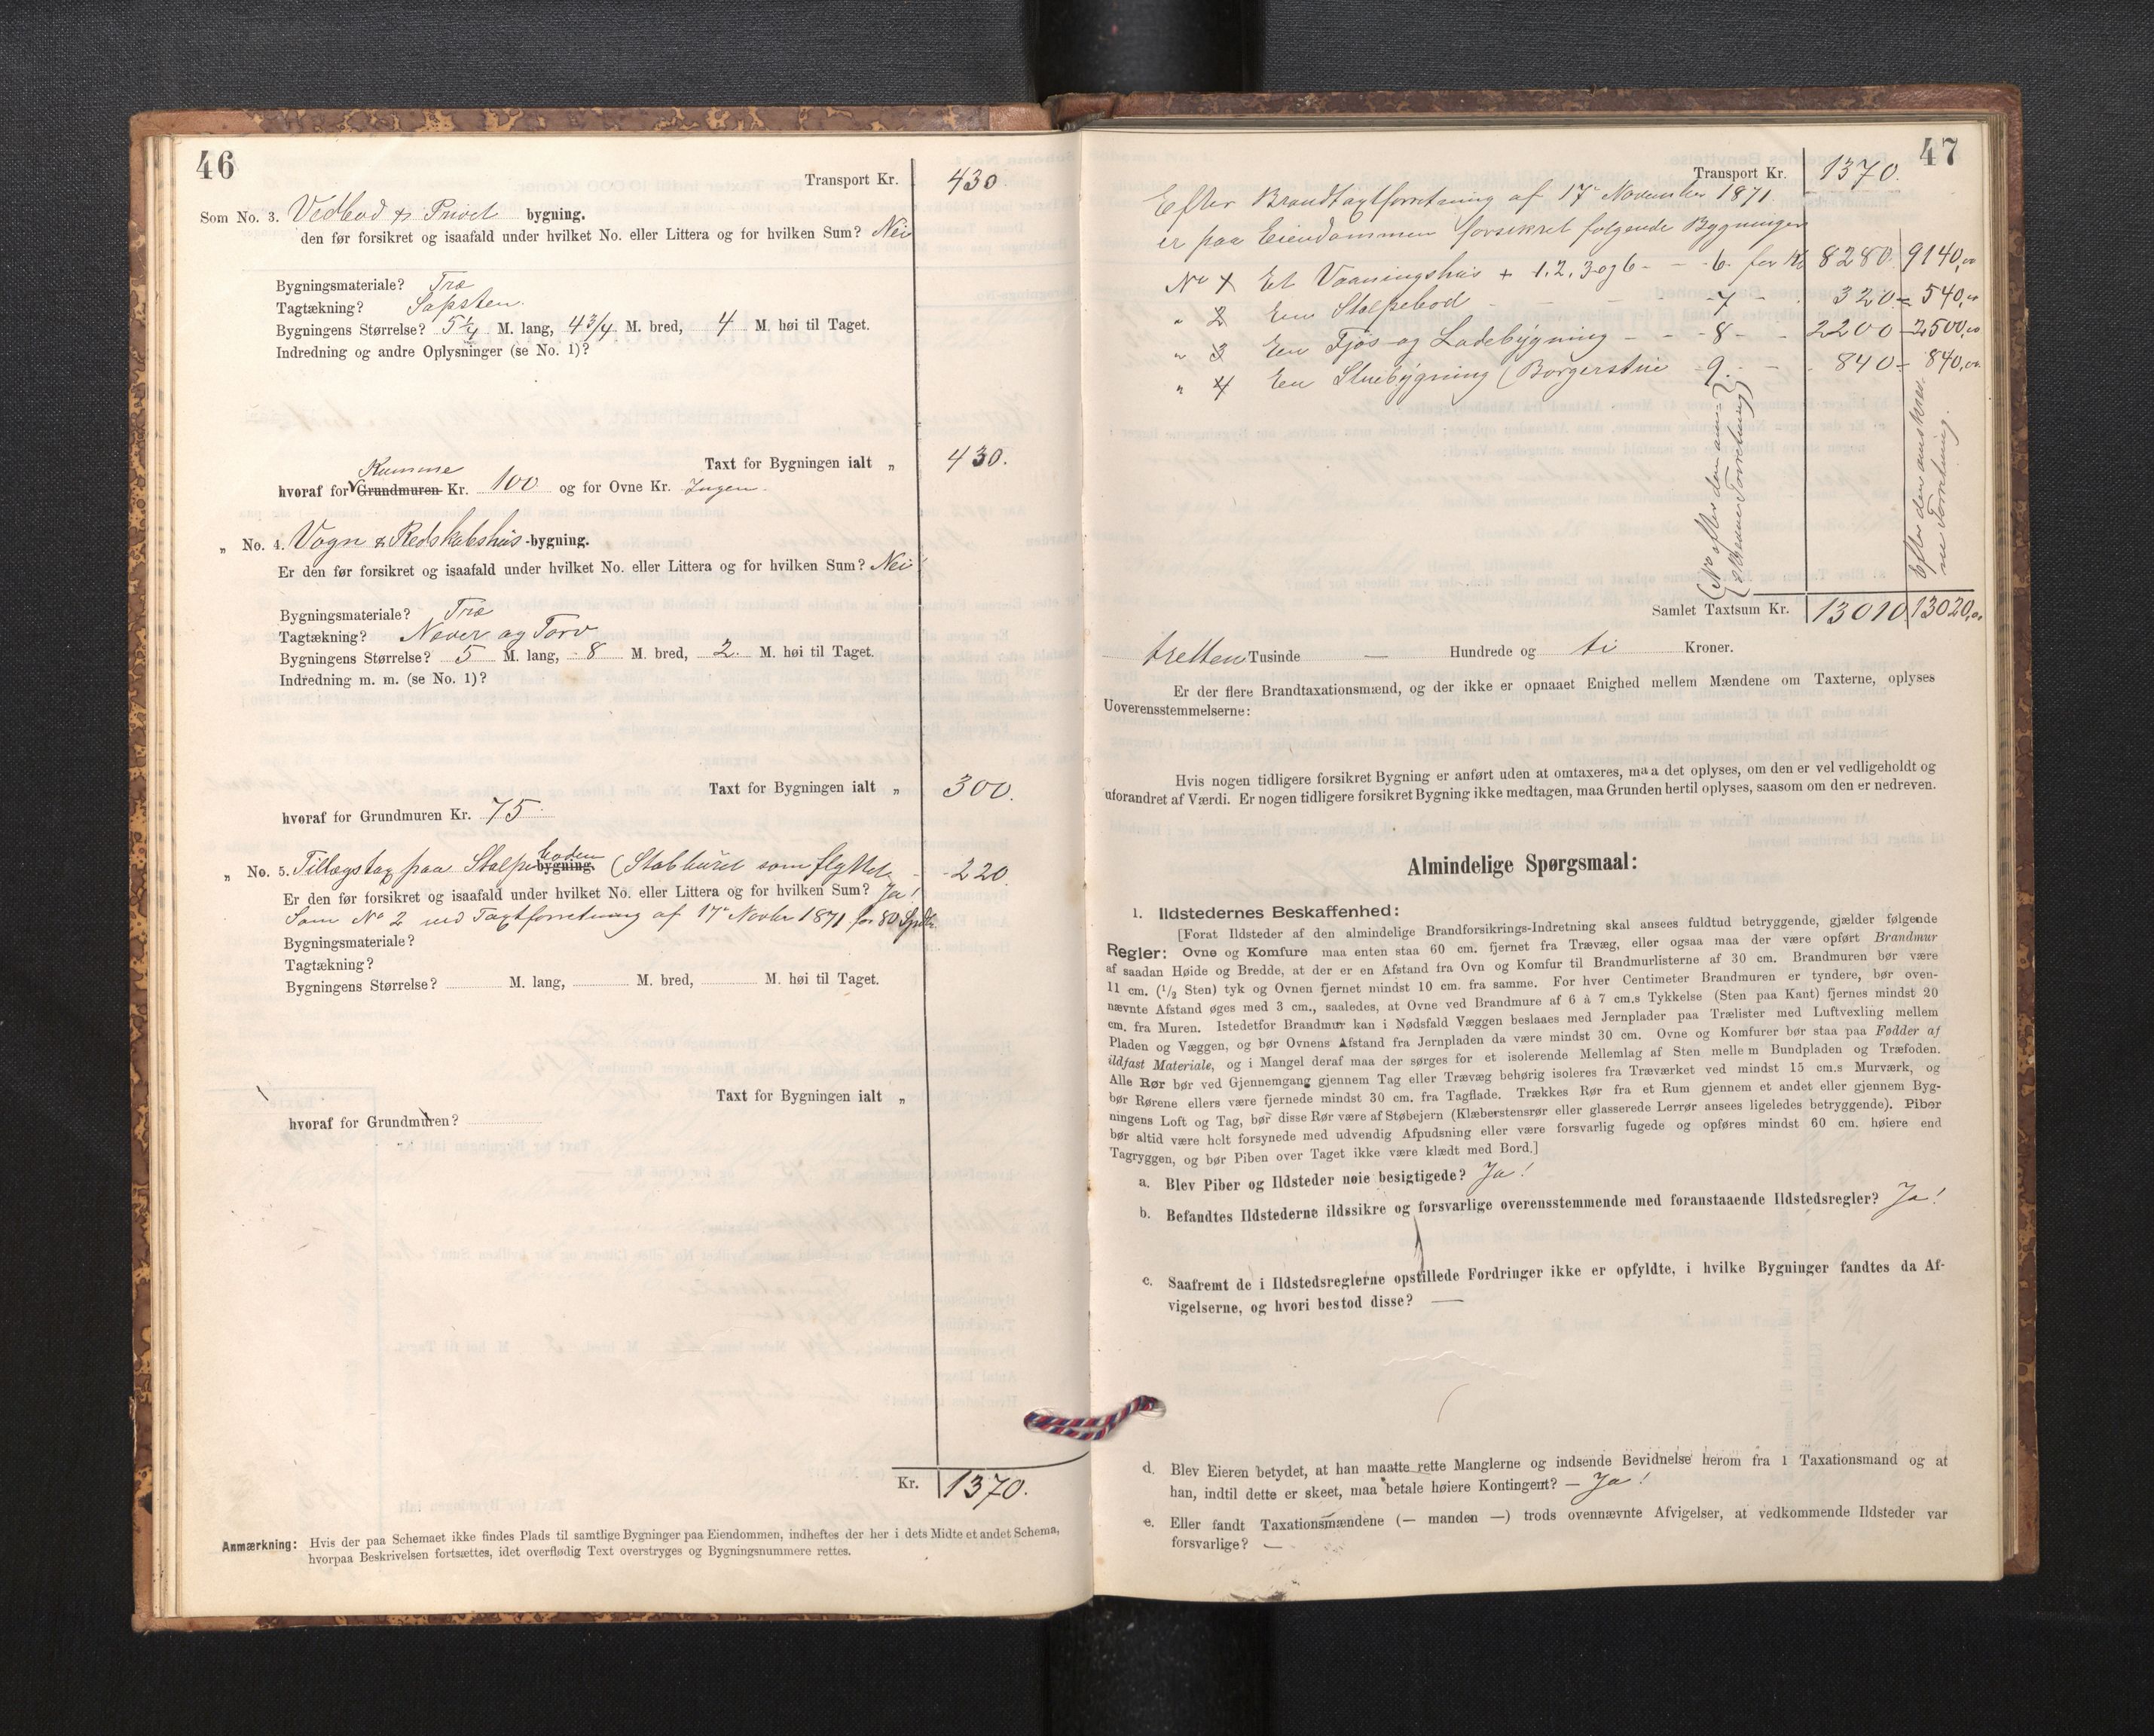 46
Transport Kr. 430.
Som No. 3. Vedbod & Privet bygning.
den før forsikret og isaafald under hvilket No. eller Littera og for hvilken Sum? Nei
Bygningsmateriale? Træ
Tagtækning? Sapsten.
Bygningens Størrelse? 5 1/4 M. lang, 4 3/4 M. bred, 4 M. høi til Taget.
Indredning og andre Oplysninger (se No. 1)?
Taxt for Bygningen ialt „ 430.
Kumme
hvoraf for Grundmuren Kr. 100 og for Ovne Kr. Ingen.
„ No. 4. Vogn & Redskabshus-bygning.
Er den før forsikret og isaafald under hvilket No. eller Littera og for hvilken Sum? Nei
Bygningsmateriale? Træ
Tagtækning? Næver og Torv
Bygningens Størrelse? 5 M. lang, 8 M. bred, 2. M. høi til Taget.
Indredning m. m. (se No. 1)?
Taxt for Bygningen ialt „ 300.
hvoraf for Grundmuren Kr. 75
boden
„ No. 5. Tillægstax paa Stolpe bygning. (Stabburet som flyttet - - 220.
Er den før forsikret og isaafald under hvilket No. eller Littera og for hvilken Sum? Ja!
Som No 2 ved Taxtforretning af 17de Novbr 1871 for 80 Spdlr.
Bygningsmateriale?
Tagtækning?
Bygningens Størrelse? M. lang, M. bred, M. høi til Taget.
Taxt for Bygningen ialt „
hvoraf for Grundmuren?
Kr. 1370.
Anmærkning: Hvis der paa Schemaet ikke findes Plads til samtlige Bygninger paa Eiendommen, indheftes der her i dets Midte et andet Schema,
hvorpaa Beskrivelsen fortsættes, idet overflødig Text overstryges og Bygningsnummere rettes.
47
Transport Kr. 1370.
Efter Brandtaxtforretning af 17de November 1871
er paa Eiendommen forsikret følgende Bygninger
No 1 Et Vaaningshus + 1. 2. 3 og 6 - - 6. for Kr 8280. 9140,00
„ 2 En Stolpebod - - - - 7 - - 320 = 540,00
„ 3 En Fjøs og Ladebygning - - - 8 - - 2200 - 2500,00
„ 4 En Stuebygning (Borgerstue 9. - - 840 = 840,00
(No efter den om-
skrevne Forretning)
Efter den omskrev.
ne Forretning.
Samlet Taxtsum Kr. 13010 13020,00
tretten Tusinde — Hundrede og ti Kroner.
Er der flere Brandtaxationsmænd, og der ikke er opnaaet Enighed mellem Mændene om Taxterne, oplyses
Uoverensstemmelserne:
Hvis nogen tidligere forsikret Bygning er anført uden at omtaxeres, maa det oplyses, om den er vel vedligeholdt og
uforandret af Værdi. Er nogen tidligere forsikret Bygning ikke medtagen, maa Grunden hertil oplyses, saasom om den er nedreven.
Almindelige Spørgsmaal:
1. Ildstedernes Beskaffenhed:
[Forat Ildsteder af den almindelige Brandforsikrings-Indretning skal ansees fuldtud betryggende, gjælder følgende
Regler: Ovne og Komfure maa enten staa 60 cm. fjernet fra Trævæg, eller ogsaa maa der være opført Brandmur
af saadan Høide og Bredde, at der er en Afstand fra Ovn og Komfur til Brandmurlisterne af 30 cm. Brandmuren bør være
11 cm. (1/2 Sten) tyk og Ovnen fjernet mindst 10 cm. fra samme. For hver Centimeter Brandmuren er tyndere, bør oven-
nævnte Afstand øges med 3 cm., saaledes, at Ovne ved Brandmure af 6 à 7 cm.s Tykkelse (Sten paa Kant) fjernes mindst 20
cm. fra Muren. Istedetfor Brandmur kan i Nødsfald Væggen beslaaes med Jernplader paa Trælister med Luftvexling mellem
Pladen og Væggen, og bør Ovnens Afstand fra Jernpladen da være mindst 30 cm. Ovne og Komfurer bør staa paa Fødder af
ildfast Materiale, og i Mangel deraf maa der sørges for et isolerende Mellemlag af Sten mellem Bundpladen og Træfoden.
Alle Rør bør ved Gjennemgang gjennem Tag eller Trævæg behørig isoleres fra Træværket ved mindst 15 cm.s Murværk, og
bør Rørene ellers være fjernede mindst 30 cm. fra Tagflade. Trækkes Rør fra et Rum gjennem et andet eller gjennem Byg-
ningens Loft og Tag, bør disse Rør være af Støbejern (Klæberstensrør eller glasserede Lerrør ansees ligeledes betryggende). Piber
bør altid være helt forsynede med udvendig Afpudsning eller være forsvarlig fugede og opføres mindst 60 cm. høiere end
Tagryggen, og bør Piben over Taget ikke være klædt med Bord.]
a. Blev Piber og Ildsteder nøie besigtigede? Ja!
b. Befandtes Ildstederne ildssikre og forsvarlige overensstemmende med foranstaaende Ildstedsregler? Ja!
c. Saafremt de i Ildstedsreglerne opstillede Fordringer ikke er opfyldte, i hvilke Bygninger fandtes da Af-
vigelserne, og hvori bestod disse? —
d. Blev Eieren betydet, at han maatte rette Manglerne og indsende Bevidnelse herom fra 1 Taxationsmand og at
han, indtil dette er skeet, maa betale høiere Kontingent? — Ja!
e. Eller fandt Taxationsmændene (— manden —) trods ovennævnte Afvigelser, at vedkommende Ildsteder var
forsvarlige? —